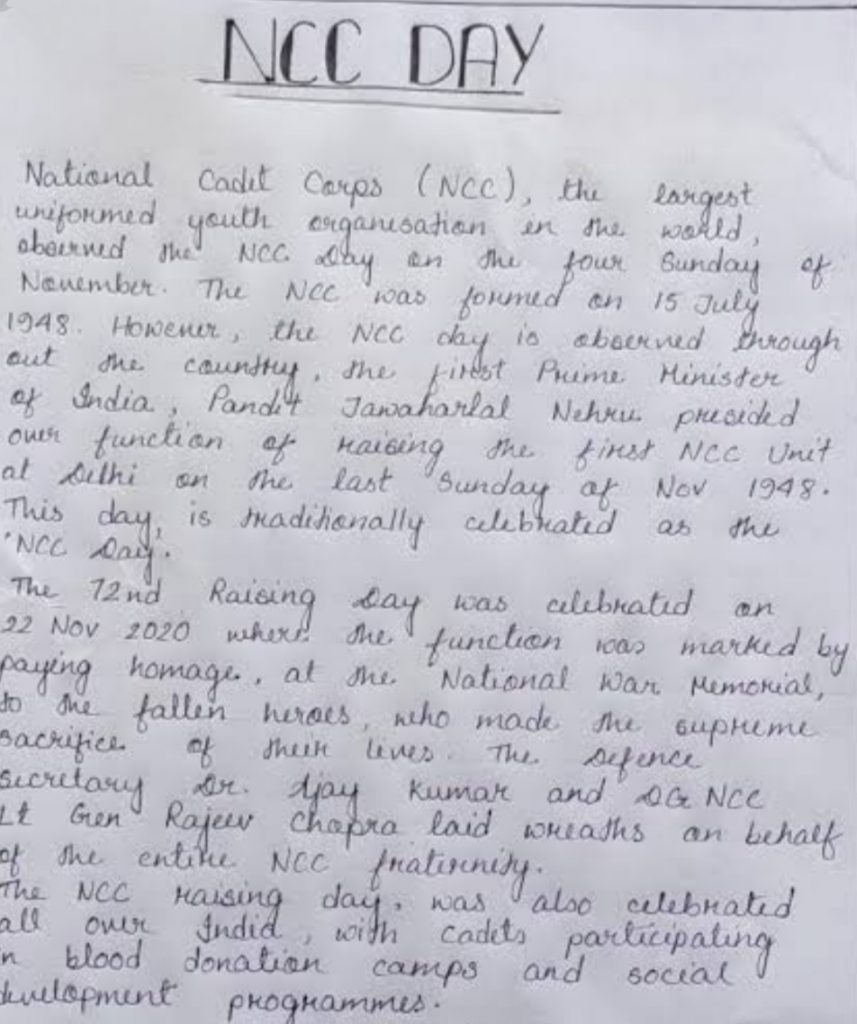 NCC DAY
National Cadet Corps (NCC), the largest
uniformed youth organisation in the world,
observed the NCC Day on the four Sunday of
November. The NCC was formed on 15 July
1948. However, the NCC day is observed through
out the country, the first Prime Minister
of India, Pandit Jawaharlal Nehru presided
over function of raising the first NCC Unit
at Delhi on the last Sunday of Nov 1948.
This day, is traditionally celebrated as the
'NCC Day.
The 72nd Raising Day was celebrated on
22 Nov 2020 where the function was marked by
paying homage, at the National War Memorial,
to the fallen heroes, who made the supreme
sacrifice of their lives. The Defence
secretary Dr. Ajay Kumar and DG NCC
Lt Gen Rajeev Chopra laid wreaths on behalf
of the entire NCC fraternity.
The NCC raising day, was also celebrated
all over India, with cadets participating
in blood donation camps and social
development programmes.